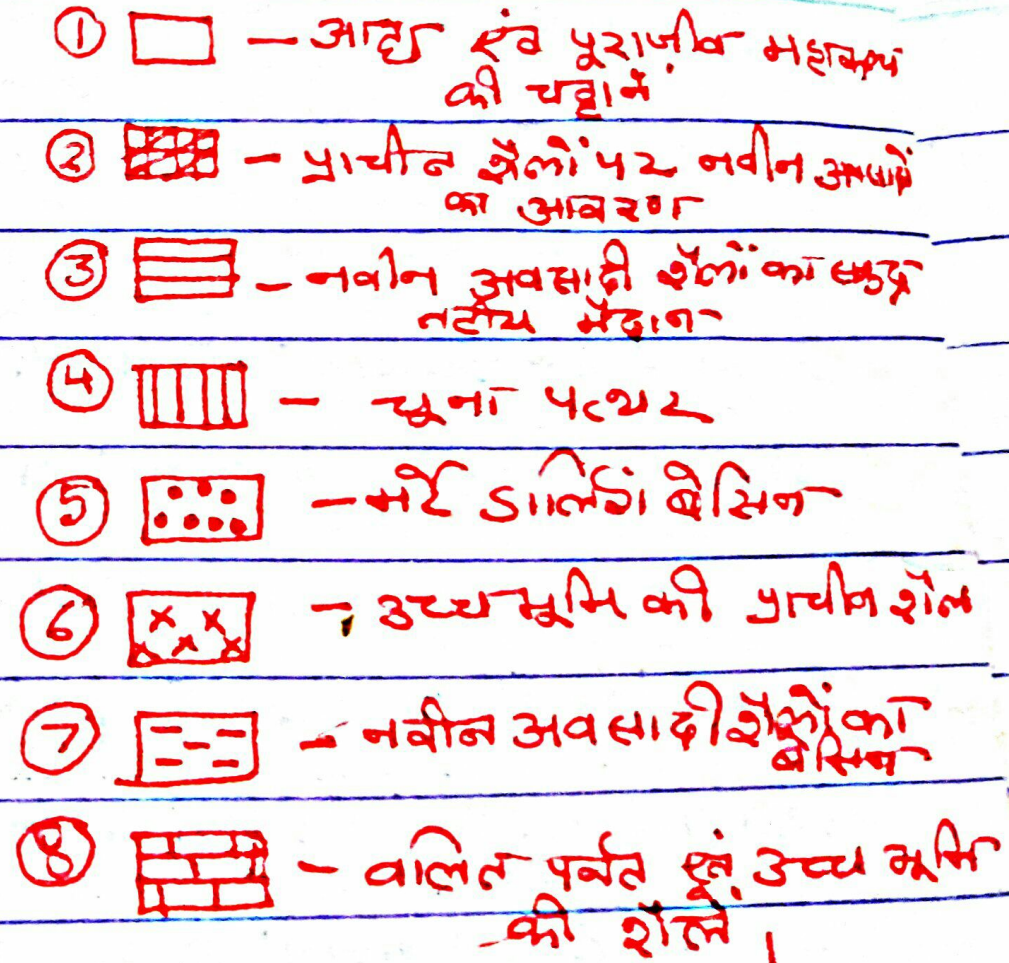 ① — आद्य एंव पूराजीव महाकल्प
की चट्टानें
② — प्राचीन शैलों पर नवीन
का आवरण
③ — नवीन अवसादी शैलों का समुद्र
तटीय मैदान
④ — चूना पत्थर
⑤ — मर्रे डार्लिंग बेसिन
⑥ — उच्चभूमि की प्राचीन शैल
⑦ — नवीन अवसादी शैलों का
बेसिन
⑧ — वलित पर्वत एंव उच्च भूमि
की शैलें।